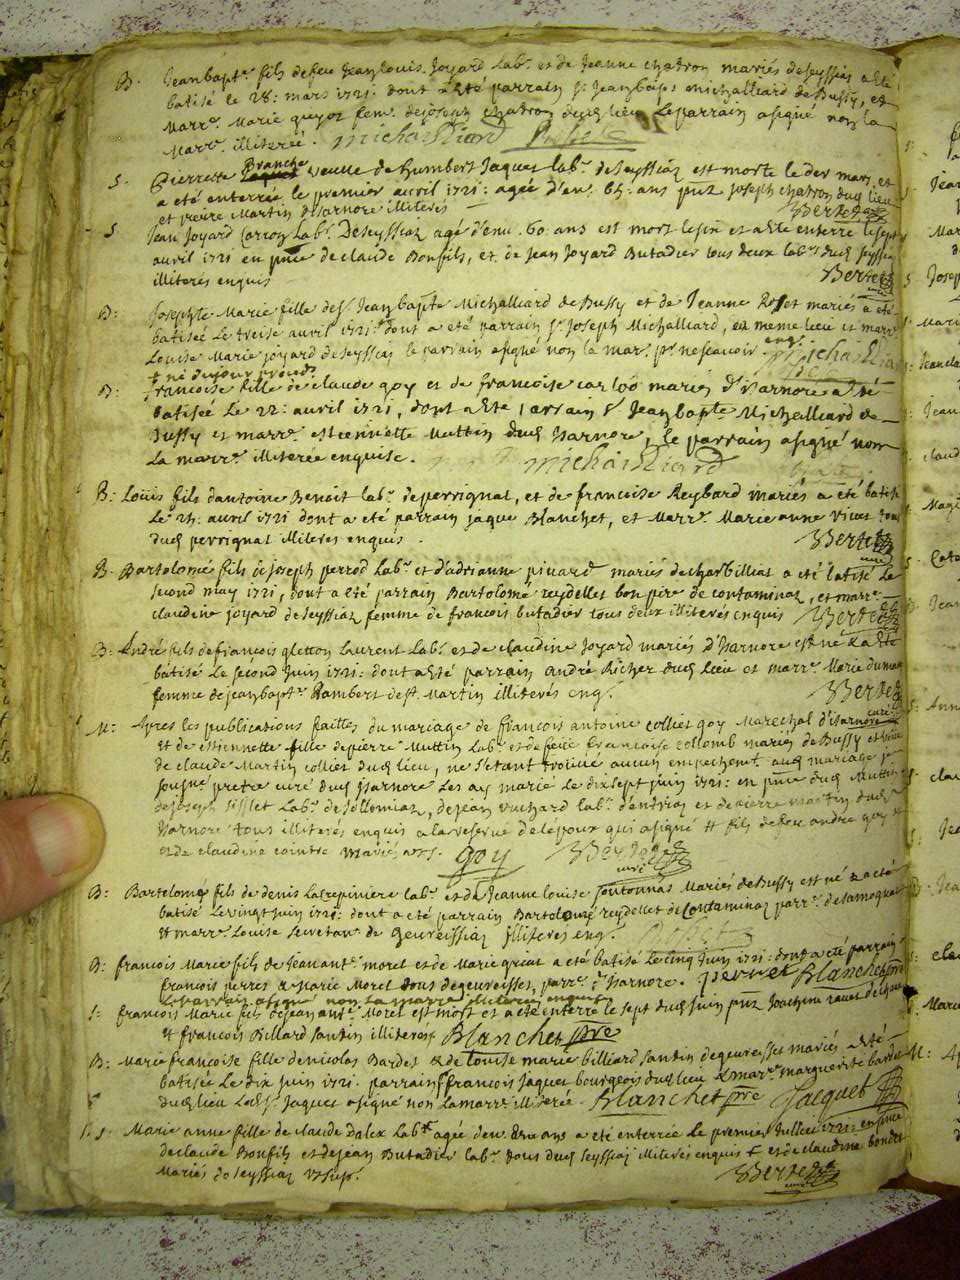 B. Jeanbapt.e fils defeu Jeanlouis Joyard Lab.r et de Jeanne chatron mariés deseyssiaz a eté
batisé le 28: mars 1721: dont a eté parrain s.r Jeanbap.e michalliard de Bussy, et
Marr.e Marie guyot fem.e dejoseph chatron dud lieu le parrain a signé non la
Marr.e illiterée. michailliard
S. Pierrette Branche veuve de humbert Jaquet lab.r deseyssiaz est morte le der mars et
a eté enterrée le premier avril 1721: agée d'en. 65. ans pnz joseph chatron dud lieu
et pierre Martin disarnore illiterés Bertet
S. Jean Joyard Carroz Lab.r Deseyssiaz agé d'enu. 60. ans est mort et a eté enterré le sept
avril 1721 en pnce de claude Bonfils, et de Jean Joyard Butadier tous deux lab.rs dud seyssiaz
illiterés enquis Bertet
B: Josephte Marie fille de s.r Jeanbapte Michalliard de Bussy et de Jeanne Rosset mariés a eté
batisée Le treise avril 1721: dont a eté parrain s.r Joseph Michalliard, du meme lieu et marr.e
Louise Marie joyard deseyssiaz le parrain a signé non la mar. p.r ne scavoir enq. michailliard
B: francoise fille de claude goy et de francoise carloo mariés d'isarnore a eté
batisée Le 22: avril 1721, dont a eté parrain s.r Jeanbapt.e Michalliard de
Bussy et marr.e estiennette Muttin dud Isarnore, le parrain a signé non
La marr.e illiterée enquise. michailliard
B: Loüis fils dantoine Benoit lab.r deperrignat, et de francoise Reybard mariés a été batisé
Le avril 1721 dont a eté parrain jaque Blanchet, et Marr.e Marie anne vivet tous
dud perrignat illiterés enquis. Bertet
B. Bartolomé fils de joseph perrod Lab.r et d'adrianne pivard mariés decharbilliat a eté batisé Le
second may 1721, dont a eté parrain Bartolomé reydellet bon pire de contaminaz, et marr.e
claudine joyard deseyssiaz femme de francois butadier tous deux illiterés enquis Bertet
B: André fils defrancois gletton Laurent Lab.r et de claudine Joyard mariés d'isarnore est né & a eté
batisé Le second Juin 1721: dont a eté parrain andré Richer dud Lieu et marr.e Marie dumas
femme dejeanbapt.e Rambert de st. Martin illiterés enq.s Bertet curé
M: Apres les publications faittes du mariage de francois antoine collier goy Marechal d'isarnore
et de estiennette fille depierre Muttin Lab.r et de feüe francoise collomb mariés de Bussy et veuve
de claude Martin collier dud lieu, ne s'etant trouvé aucun empechem.t aud mariage je
sousigné pretre curé dud Isarnore les ay marié le dixsept juin 1721: en pnce dud Muttin
dejoseph Sisslet Lab.r desollomiaz, dejean vuchard lab.r dentriaz et de pierre martin dud
Isarnore tous illiterés enquis a la reserve de lépoux qui a signé # fils de feu andre goy
et de claudine cointre mariés goy Bertet curé
B: Bartolomé fils de denis Lacrepiniere lab.r et de Jeanne louise Mariés de Bussy est né & a eté
batisé Le vingt juin 1721: dont a eté parrain Bartolomé reydellet de Contaminaz parr.e desamognat
et marr.e Louise Secretan. de Geureissiaz illiterés enq.s
B: francois Marie fils de Jean ant.e moret et de Marie great a eté batisé Le cinq juin 1721: dont a eté parrain
francois perret & marie Moret tous degeureisset, parr.e d'Isarnore. perret Blanchet pre
Le parrain a signé non La marre illiterée enquise
S: francois Marie fils dejean ant.e Moret est mort et a eté enterré le sept dud juin pnz Joachim
et francois Billard Santin illiterés Blanchet pre
B: Marie francoise fille denicolas Bardet & de Louise marie billiard santin degeureisset mariés a eté
batisée Le dix juin 1721. parrain francois Jaquet bourgeois dud lieu & marr.e marguerite bardet
dud lieu Led s.r Jaquet a signé non la marr.e illiterée. Blanchet pre Jacquet
S. Marie anne fille de claude Dalex Lab.r agée denu. ans a eté enterrée Le premier Jullet 1721: en pnce
declaude Bonfils et dejean Butadier lab.rs tous dud seyssiaz illiterés enquis & et de claudine bondet
Mariés deseyssiaz Bertet curé